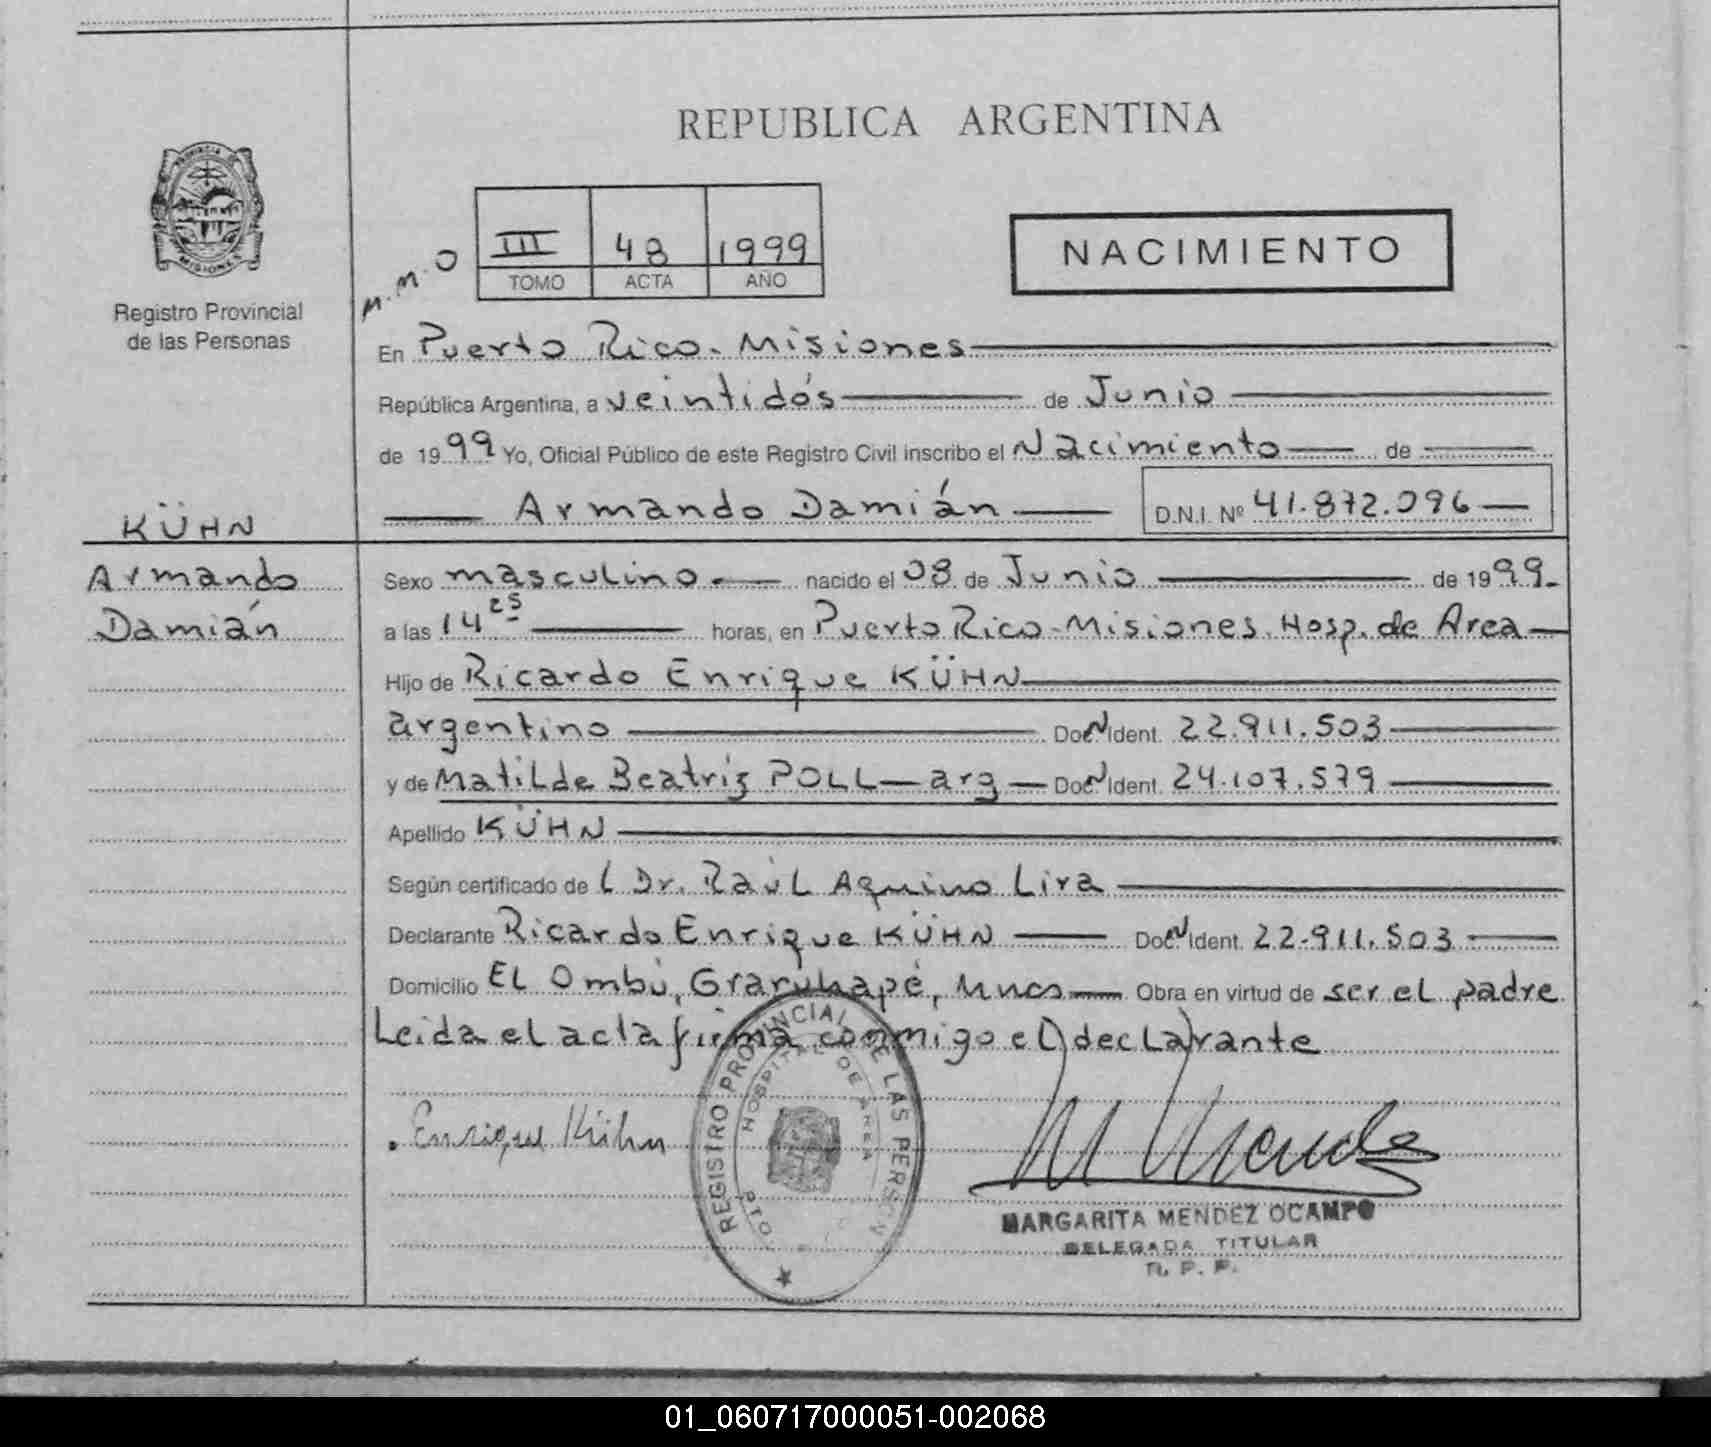 REPUBLICA ARGENTINA
PROVINCIA DE
MISIONES
Registro Provincial
de las Personas
M.M.O
III 48 1999
TOMO ACTA AÑO
NACIMIENTO
En Puerto Rico. Misiones
República Argentina, a veintidós de Junio
de 1999 Yo, Oficial Público de este Registro Civil inscribo el Nacimiento de
Armando Damián D.N.I. Nº 41.872.096
KÜHN
Armando
Damián
Sexo masculino nacido el 08 de Junio de 1999.
a las 14 25 horas, en Puerto Rico-Misiones. Hosp. de Area
Hijo de Ricardo Enrique KÜHN
argentino Doc N Ident. 22.911.503
y de Matilde Beatriz POLL-arg Doc N Ident. 24.107.579
Apellido KÜHN
Según certificado de l Dr. Raúl Aquino Lira
Declarante Ricardo Enrique KÜHN Doc N Ident. 22.911.503
Domicilio El Ombú, Garuhapé, Mnes Obra en virtud de ser el padre
Leida el acta firma conmigo el declarante
Enrique Kühn
REGISTRO PROVINCIAL DE LAS PERSON
HOSPITAL DE AREA
PTO.
MARGARITA MENDEZ OCAMPO
DELEGADA TITULAR
R. P. P.
01_060717000051-002068